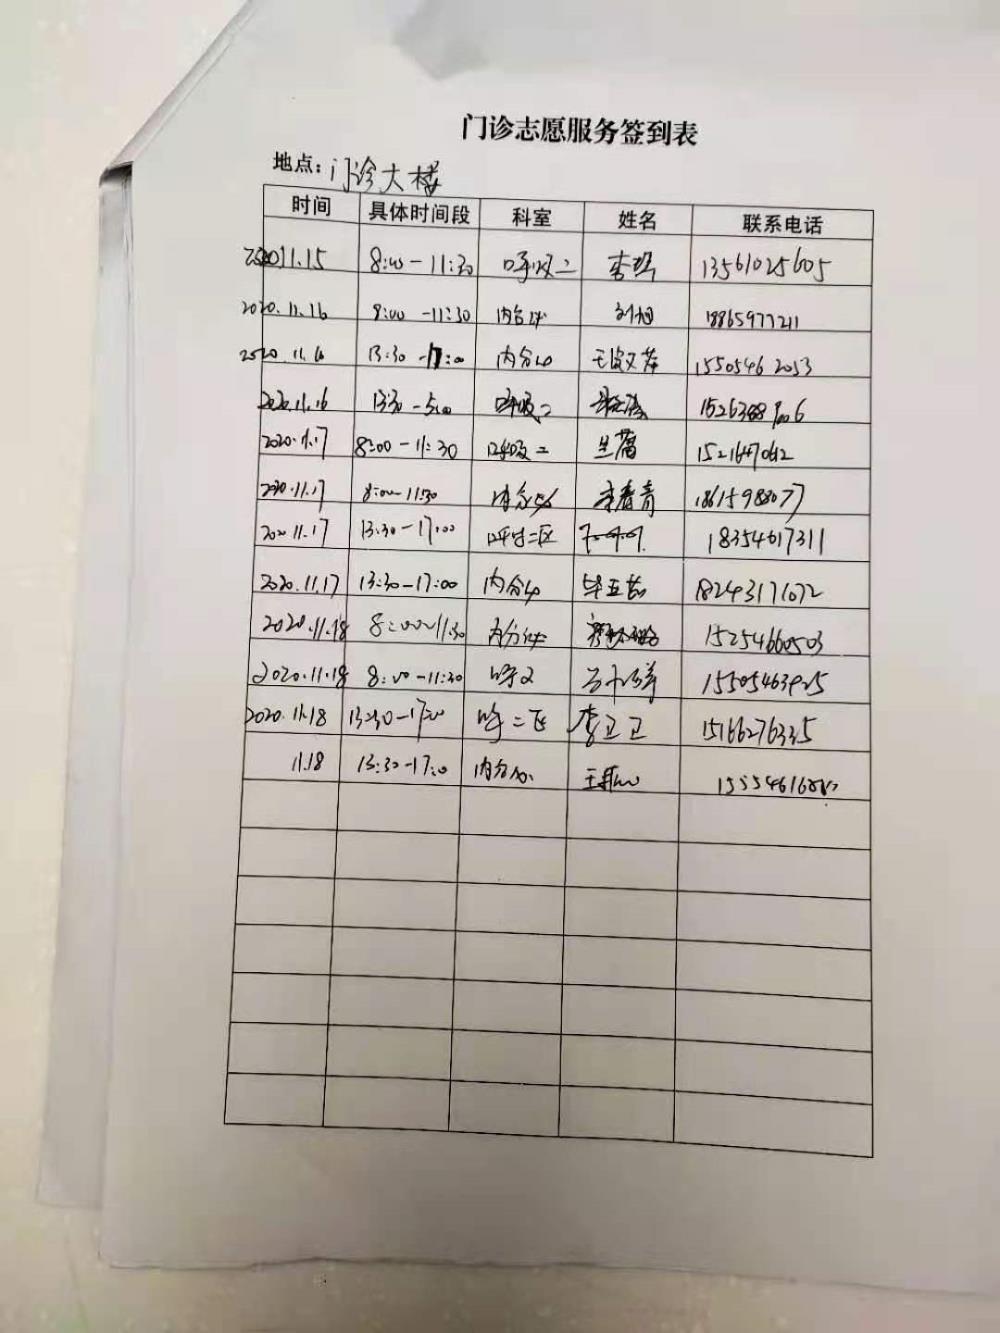 门诊志愿服务签到表
地点: 门诊大楼
时间 具体时间段 科室 姓名 联系电话
2020 11.15 8:00-11:30 呼吸二 13561025605
2020.11.16 8:00-11:30 内分泌 刘旭 18865977211
2020.11.16 13:30-17:00 内分泌 15505462053
2020.11.16 13:30-5:00 呼吸二
2020.11.17 8:00-11:30 呼吸二
2020.11.17 8:00-11:30 内分泌 李春青 18615988077
2020.11.17 13:30-17:00 二区 18354617311
2020.11.17 13:30-17:00 内分泌 18243171072
2020.11.18 8:00-11:30 内分泌 15254660503
2020.11.18 8:00-11:30 呼二 15505463925
2020.11.18 13:30-17:00 呼二 李卫卫 15166276335
11.18 13:30-17:00 内分泌